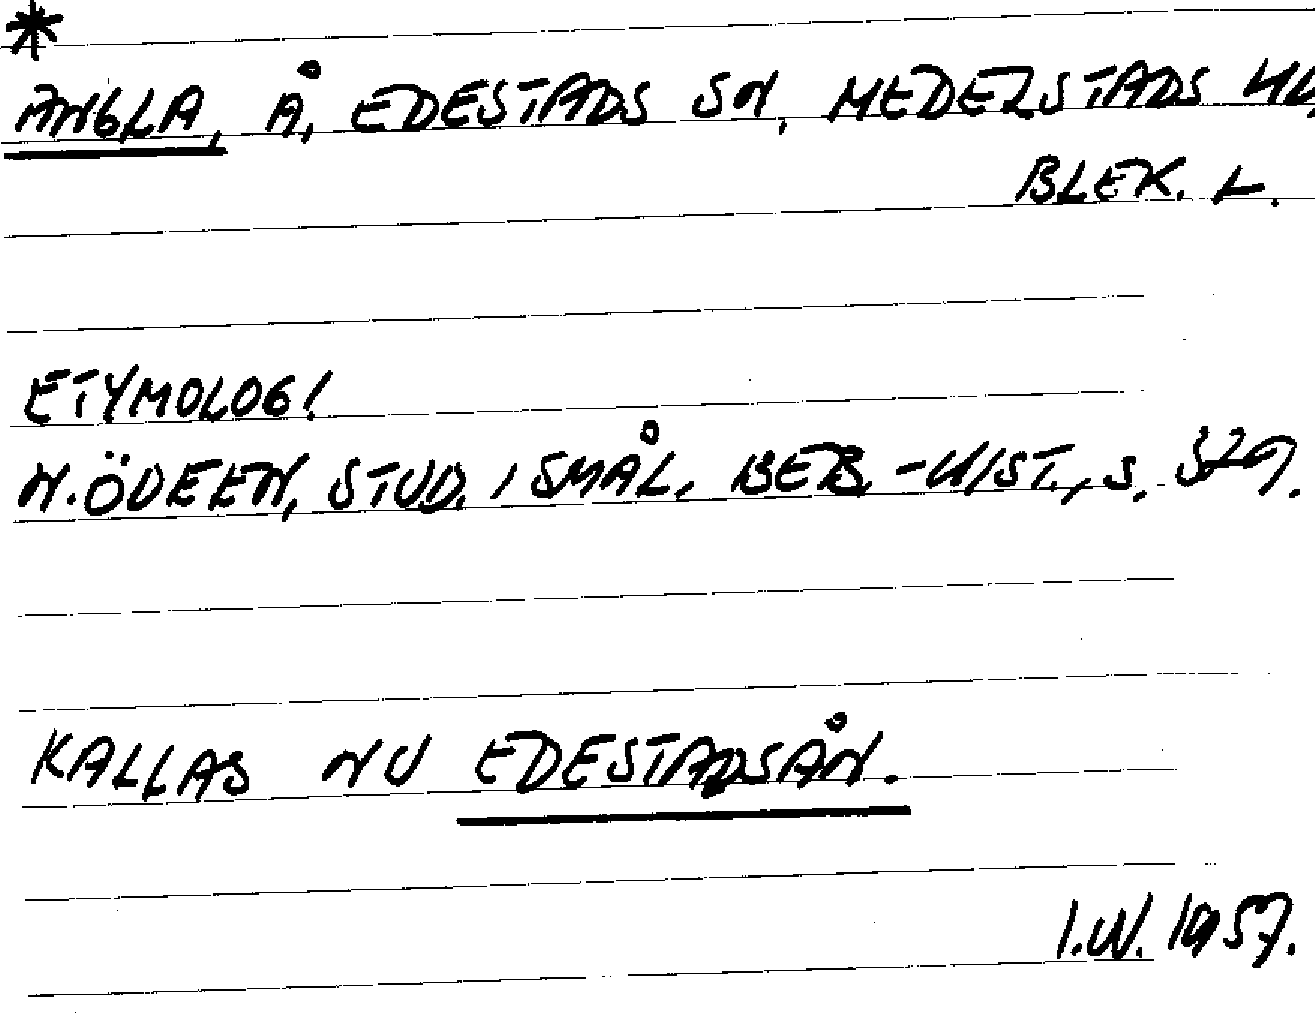 *
ANGLA, Å, EDESTADS SN, MEDELSTADS HD,
BLEK. L.
ETYMOLOGI
N. ÖDEEN, STUD. I SMÅL. BEB.-HIST., S. 329.
KALLAS NU EDESTADSÅN.
I.W. 1957.